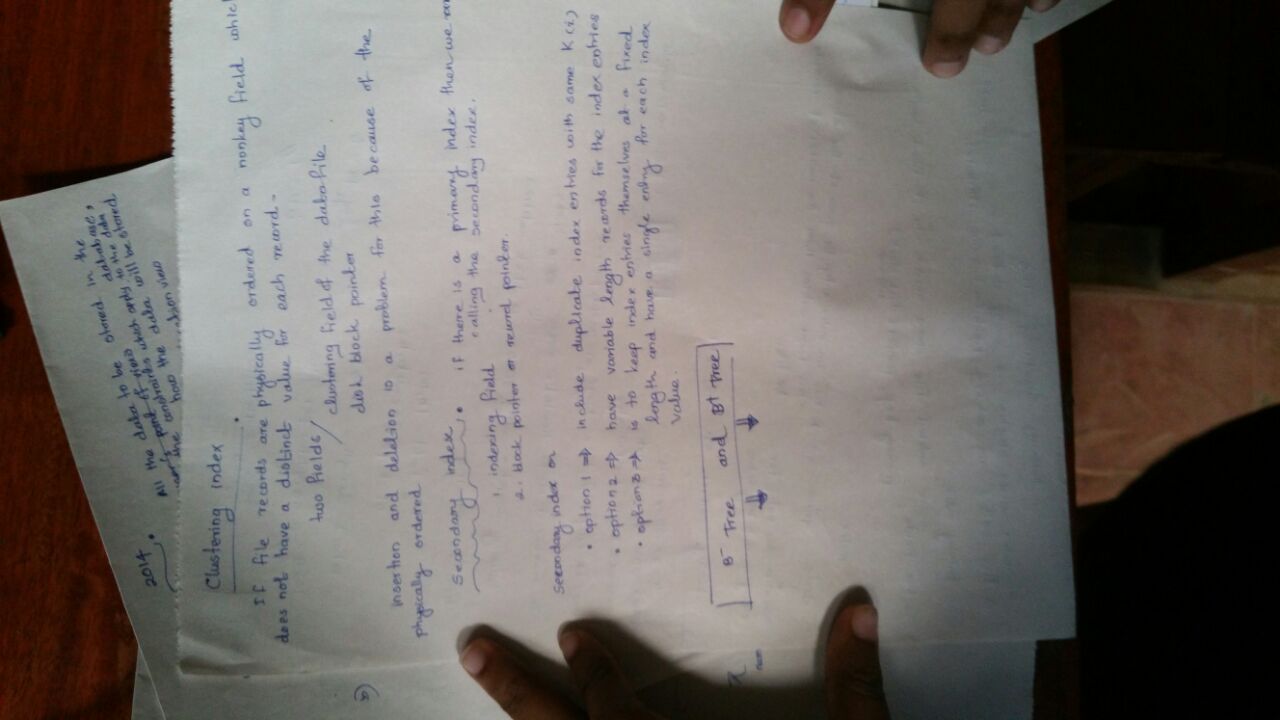 2014
All the data to be stored in the
user's point of view database,
the constraints which apply to the data
how the data will be stored
view
Clustering index
If file records are physically ordered on a nonkey field which
does not have a distinct value for each record.
two fields / clustering field of the data file
disk block pointer
insertion and deletion is a problem for this because of the
physically ordered
Secondary index. if there is a primary index then we are
calling the secondary index.
1. indexing field
2. block pointer or record pointer.
Secondary index on
• option 1 ⇒ include duplicate index entries with same K(i)
• option 2 ⇒ have variable length records for the index entries
• option 3 ⇒ is to keep index entries themselves at a fixed
length and have a single entry for each index
value.
B⁻ Tree and B⁺ Tree